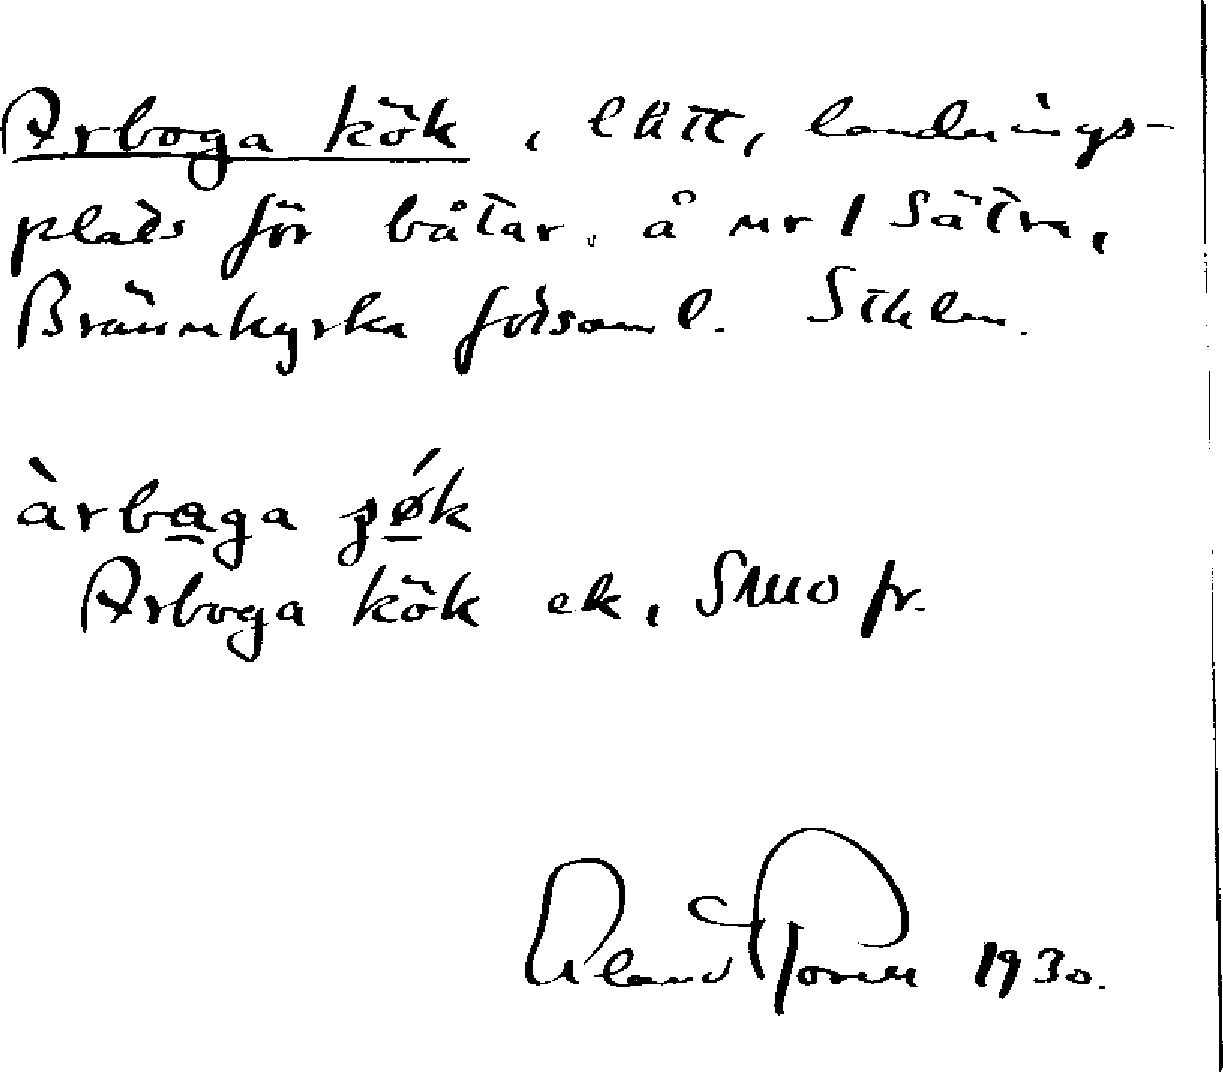 Arboga kök, lätt, landnings-
plats för båtar. å nr 1 Sätra,
Brännkyrka församl. Sthlm.
àrbaga ɟǿk
Arboga kök ek, SMO fr.
1930.